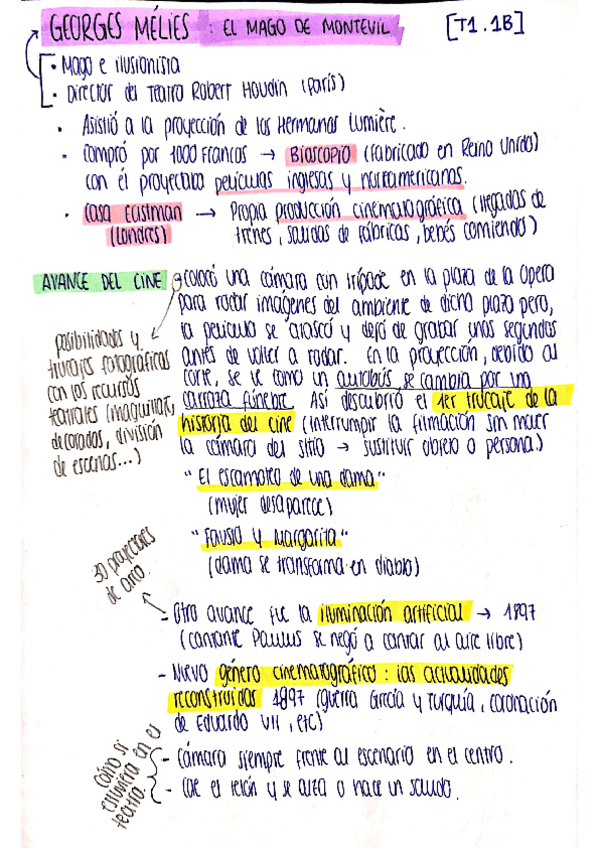 GEORGES MÉLIES : EL MAGO DE MONTEVIL [T1.1B]
• Mago e ilusionista
• Director del Teatro Robert Houdin (París)
• Asistió a la proyección de los Hermanos Lumière.
• Compró por 1000 Francos → Bioscopio (fabricado en Reino Unido)
con él proyectaba películas inglesas y norteamericanas.
• Casa Eastman → Propia producción cinematográfica (llegadas de
(Londres) trenes, salidas de fábricas, bebés comiendo)
AVANCE DEL CINE
colocó una cámara con trípode en la plaza de la Opera
para rodar imágenes del ambiente de dicha plaza pero,
la película se atascó y dejó de grabar unos segundos
antes de volver a rodar. En la proyección, debido al
corte, se ve como un autobús se cambia por una
carroza fúnebre. Así descubrió el 1er trucaje de la
historia del cine (interrumpir la filmación sin mover
la cámara del sitio → sustituir objeto o persona.)
posibilidades y
trucajes fotográficos
con los recursos
teatrales (maquinaria,
decorados, división
de escenas...)
"El escamoteo de una dama"
(mujer desaparece)
"Fausto y Margarita"
(dama se transforma en diablo)
30 proyectores
de arco.
- Otro avance fue la iluminación artificial → 1897
(cantante Paulus se negó a cantar al aire libre)
- Nuevo género cinematográfico: las actualidades
reconstruidas 1897 (guerra Grecia y Turquía, coronación
de Eduardo VII, etc)
Como si
estuviera en el
teatro.
- Cámara siempre frente al escenario en el centro.
- Cae el telón y se alza o hace un saludo.